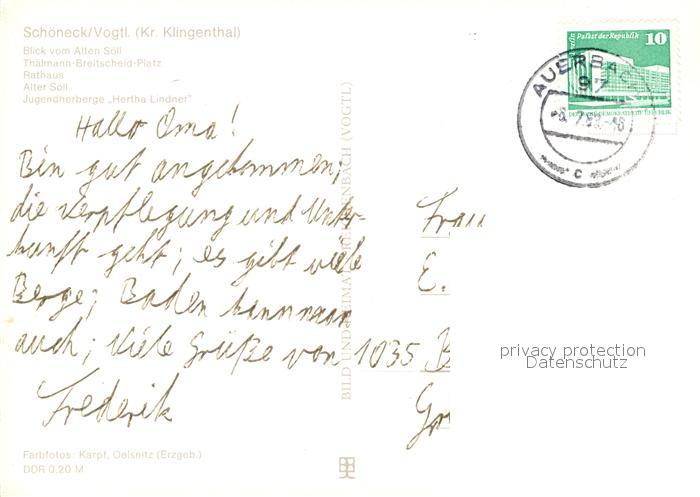 Schöneck/Vogtl. (Kr. Klingenthal)
Blick vom Alten Söll
Thälmann-Breitscheid-Platz
Rathaus
Alter Söll
Jugendherberge „Hertha Lindner"
Hallo Oma!
Bin gut angekommen;
die Verpflegung und Unter-
kunft geht; es gibt viele
Berge; Baden kann man
auch; Viele Grüße von
Frederik
Farbfotos: Karpf, Oelsnitz (Erzgeb.)
DDR 0,20 M
BILD UND HEIMAT REICHENBACH (VOGTL)
Berlin Palast der Republik
10
AUERBACH
97
c
Frau
E.
1035 B
privacy protection
Datenschutz